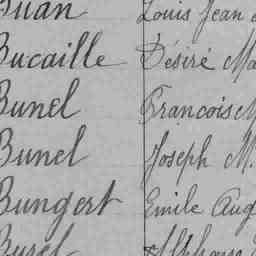 Buan Louis Jean
Bucaille Désiré Ma
Bunel François M
Bunel Joseph M.
Bungert Emile Aug
Burel Alphonse